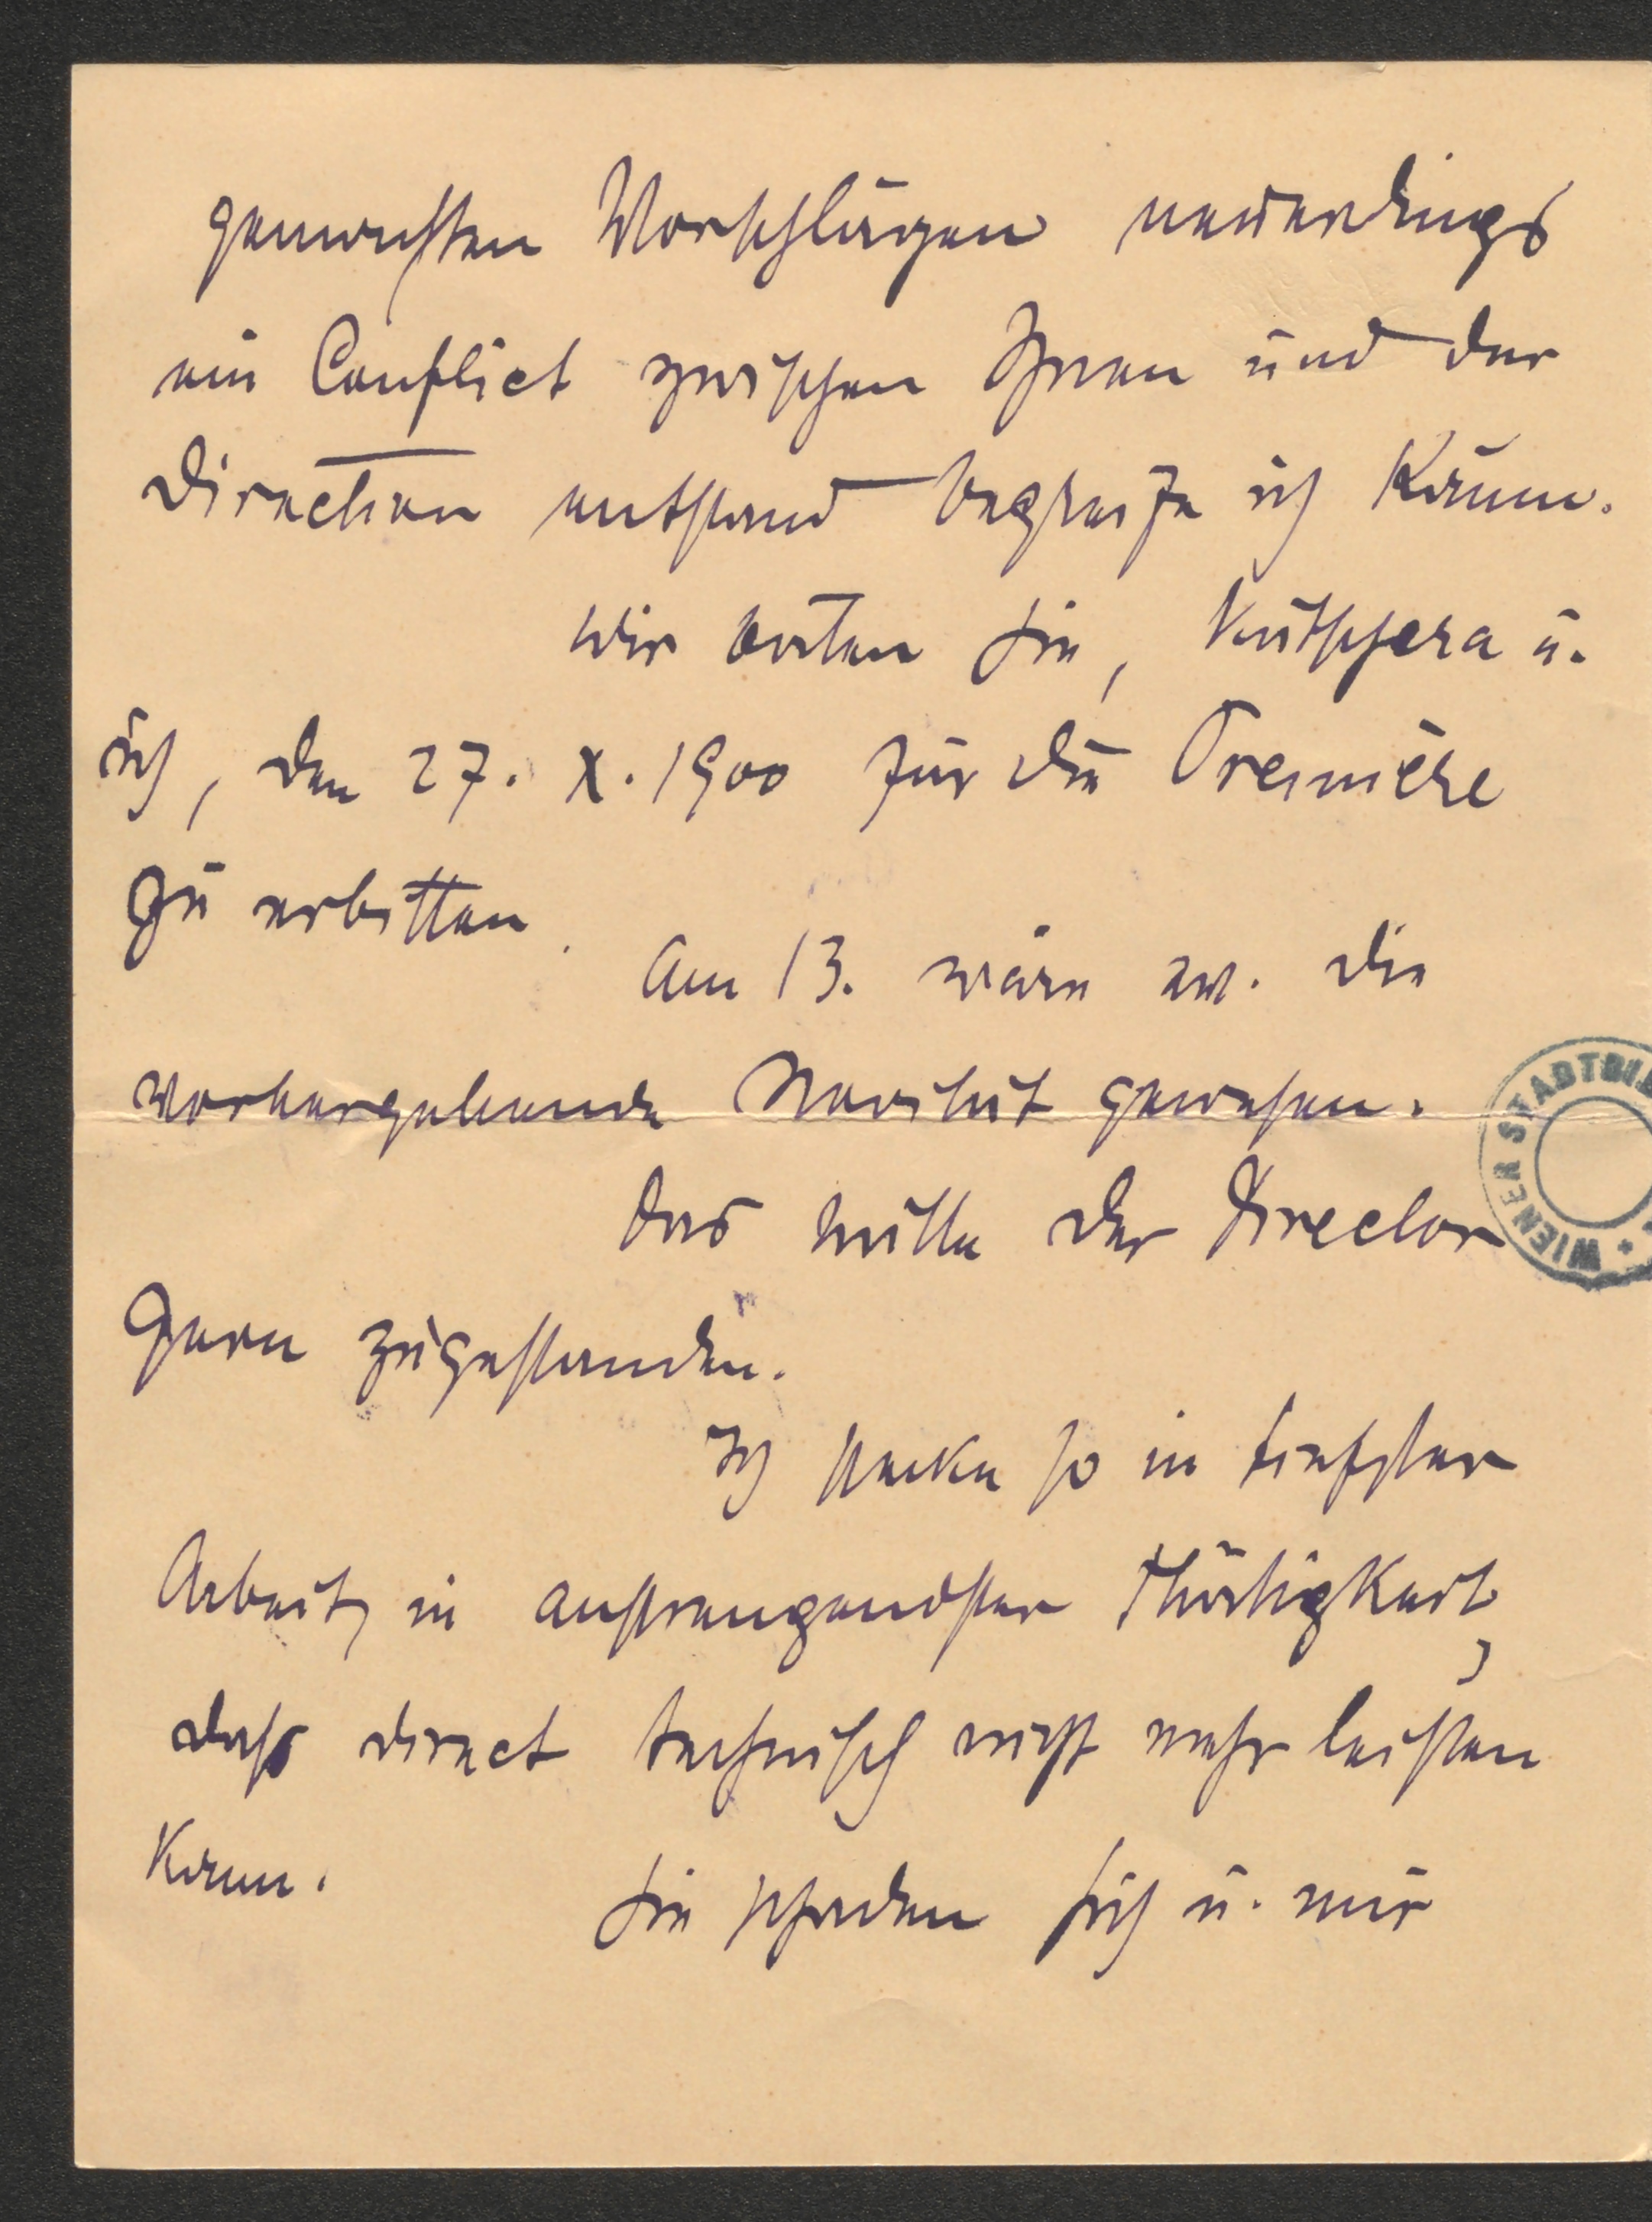 gemachten Vorschlägen neuerdings
ein Conflict zwischen Ihnen und der
Direction entstand begreife ich kaum.
Wir baten Sie, Kutschera u.
ich, den 27. X. 1900 für die Première
zu erbitten.
Am 13. wäre die
vorhergehende Novität gewesen.
Das hätte der Director
gern zugestanden.
Ich stecke so in tiefster
Arbeit, in anstrengendster Thätigkeit,
dass direct technisch nicht mehr leisten
kann.
Sie schaden sich u. mir
WIENER STADTBI